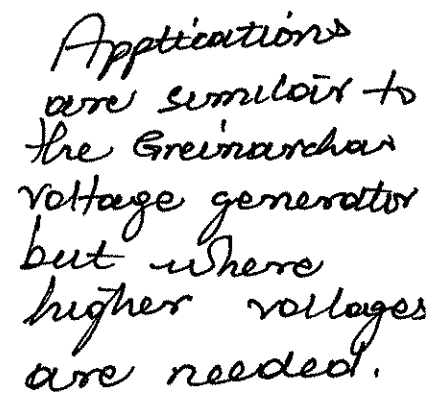 Applications
are similar to
the Greinarchar
voltage generator
but where
higher voltages
are needed.